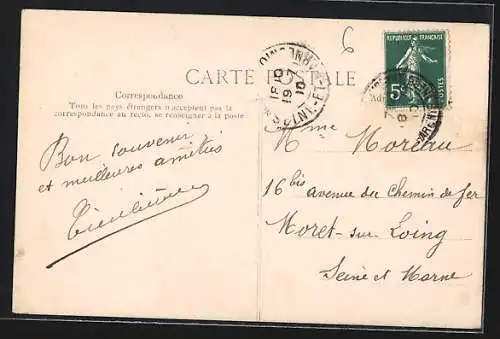 6
REPUBLIQUE FRANÇAISE
5c
POSTES
18-10
19
10
CARTE POSTALE
Correspondance
Tous les pays étrangers n'acceptent pas la
correspondance au recto, se renseigner à la poste
Bon souvenir
et meilleures amitiés
Mme Moreau
16 bis avenue du Chemin de fer
Moret-sur-Loing
Seine et Marne